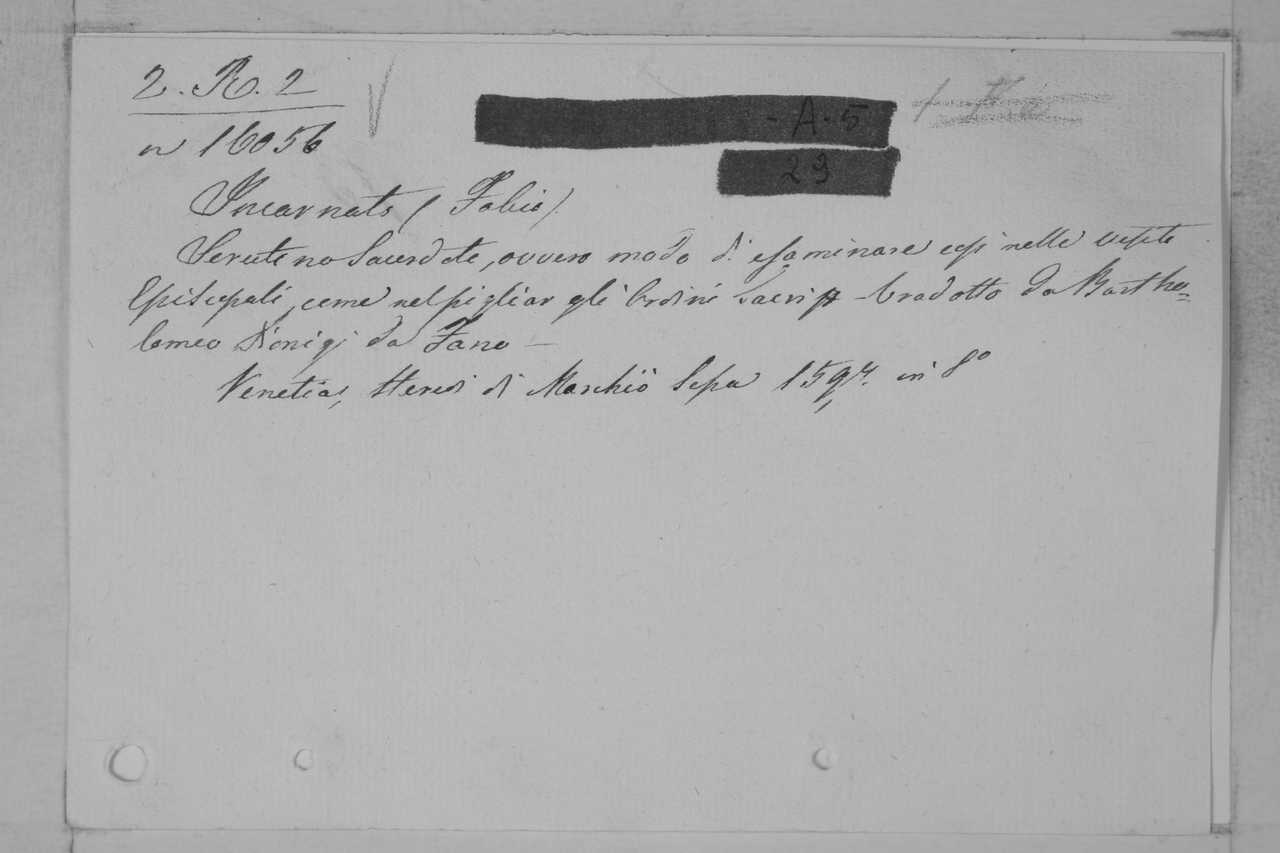 2. R. 2
n 16056
- A - 5
23
Incarnato (Fabio)
Scrutenno Sacerdote, ovvero modo di esaminare così nelle visite
Episcopali, come nel pigliar gli Ordini Sacri tradotto da Bartho=
lomeo Dionigi da Fano —
Venetia, Heredi di Marchiò Sepa in 8°